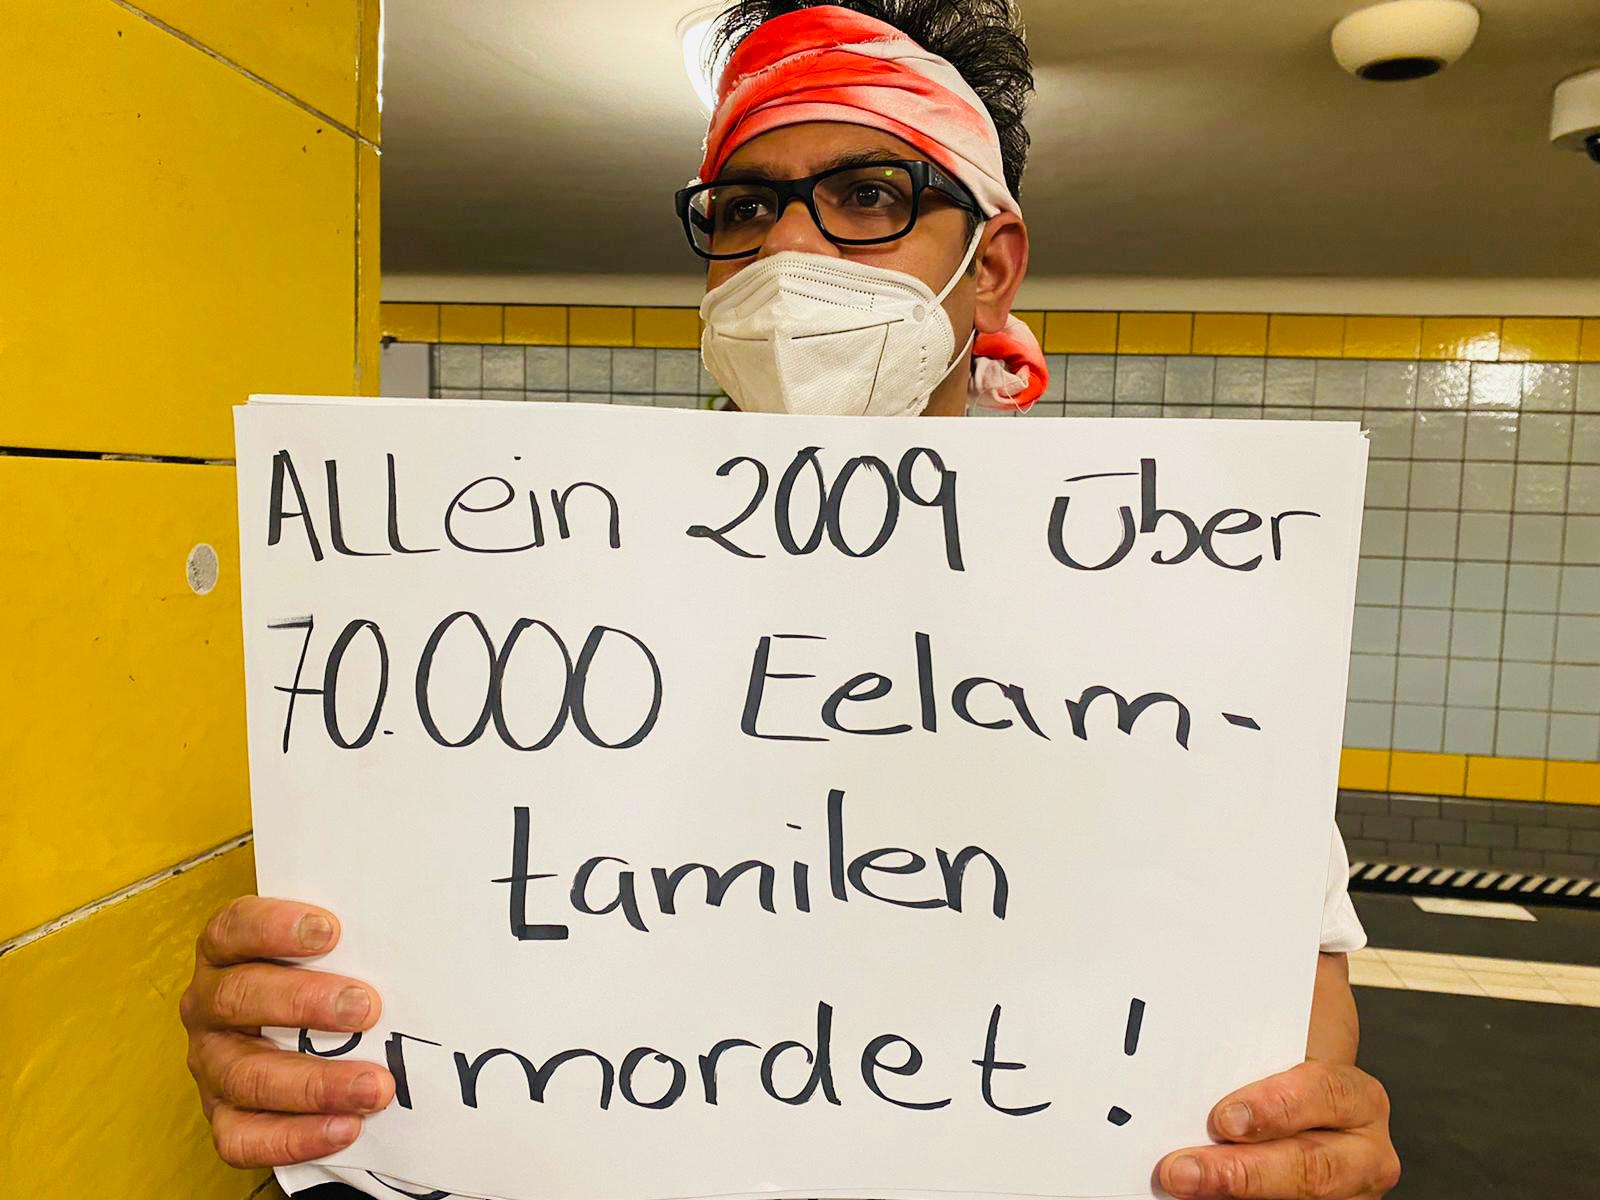 Allein 2009 über
70.000 Eelam-
tamilen
ermordet!